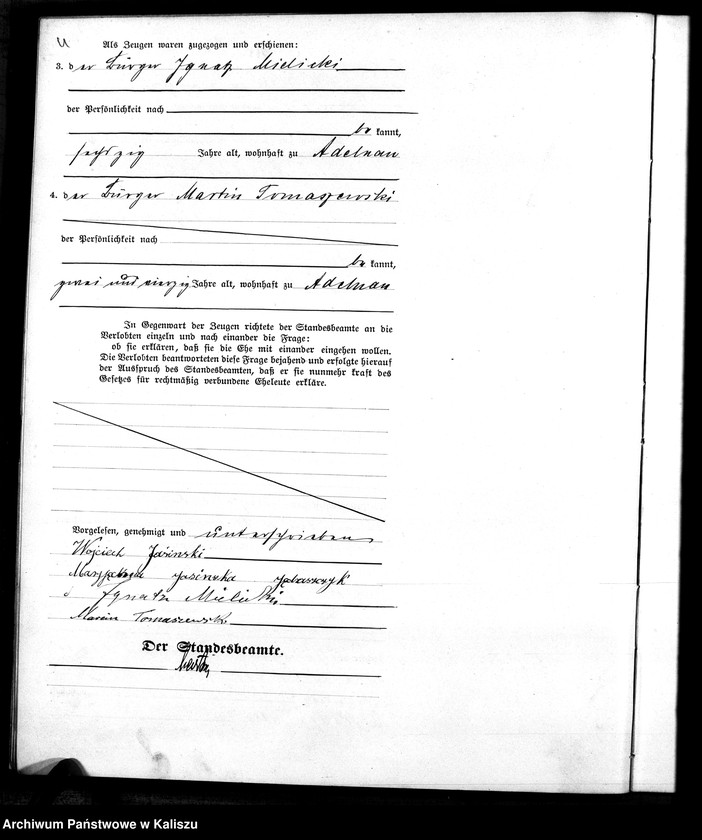 Als Zeugen waren zugezogen und erschienen:
3. der Bürger Ignatz Mielicki
der Persönlichkeit nach
be kannt,
sechzig Jahre alt, wohnhaft zu Adelnau
4. der Bürger Martin Tomaszewski
der Persönlichkeit nach
be kannt,
zwei und vierzig Jahre alt, wohnhaft zu Adelnau
In Gegenwart der Zeugen richtete der Standesbeamte an die
Verlobten einzeln und nach einander die Frage:
ob sie erklären, daß sie die Ehe mit einander eingehen wollen.
Die Verlobten beantworteten diese Frage bejahend und erfolgte hierauf
der Ausspruch des Standesbeamten, daß er sie nunmehr kraft des
Gesetzes für rechtmäßig verbundene Eheleute erkläre.
Vorgelesen, genehmigt und unterschrieben
Wojciech Jasinski
Jasinska
Ignatz Mielicki
Marcin Tomaszewski
Der Standesbeamte.
Archiwum Państwowe w Kaliszu